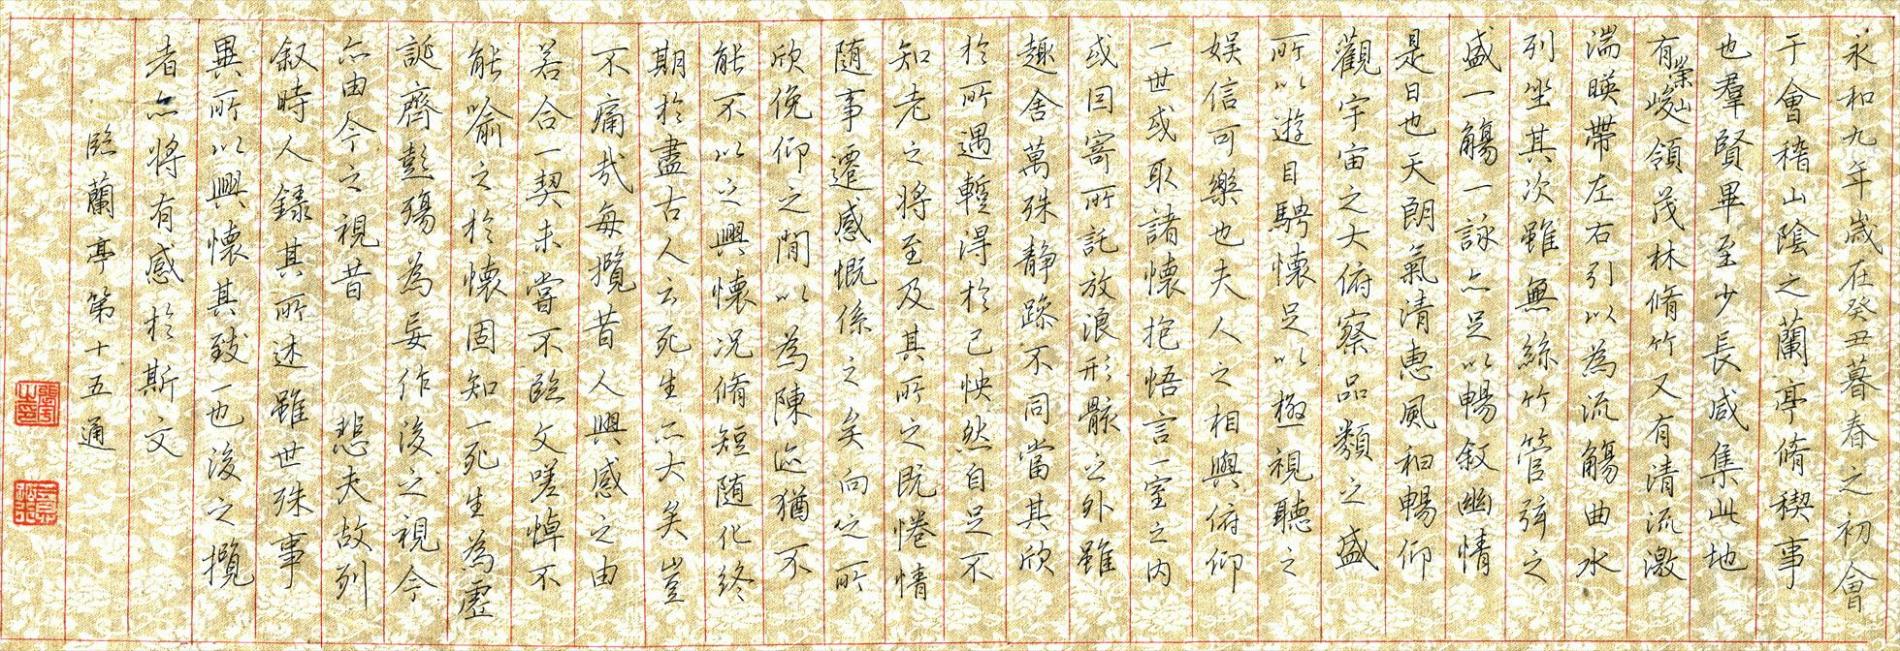 永和九年歲在癸丑暮春之初會
于會稽山陰之蘭亭脩稧事
也羣賢畢至少長咸集此地
有崇山峻領茂林脩竹又有清流激
湍暎帶左右引以為流觴曲水
列坐其次雖無絲竹管弦之
盛一觴一詠亦足以暢敘幽情
是日也天朗氣清惠風和暢仰
觀宇宙之大俯察品類之盛
所以遊目騁懷足以極視聽之
娛信可樂也夫人之相與俯仰
一世或取諸懷抱悟言一室之內
或因寄所託放浪形骸之外雖
趣舍萬殊静躁不同當其欣
於所遇暫得於己怏然自足不
知老之將至及其所之既惓情
随事遷感慨係之矣向之所
欣俛仰之閒以為陳迹猶不
能不以之興懷况脩短随化終
期於盡古人云死生亦大矣豈
不痛哉每攬昔人興感之由
若合一契未嘗不臨文嗟悼不
能喻之於懷固知一死生為虛
誕齊彭殤為妄作後之視今
亦由今之視昔 悲夫故列
叙時人錄其所述雖世殊事
異所以興懷其致一也後之攬
者亦將有感於斯文
臨蘭亭第十五通